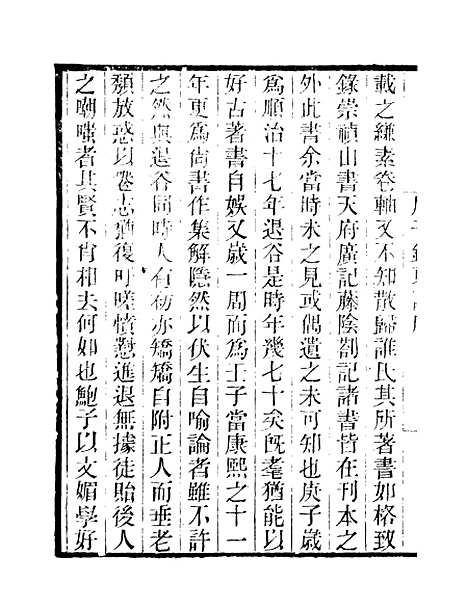 載之縑素卷軸又不知散歸誰氏其所著書如格致
錄崇禎山書天府廣記藤陰劄記諸書皆在刊本之
外此書余當時未之見或偶遺之未可知也庚子歲
為順治十七年退谷是時年幾七十矣旣耄猶能以
好古著書自娛又歲一周而為壬子當康熙之十一
年更為尙書作集解隱然以伏生自喻論者雖不許
之然與退谷同時人有初亦矯矯自附正人而垂老
頹放惑以卷志猶復可嘆憤懟進退無據徒貽後人
之嘲嗤者其賢不肖相去何如也鮑子以文媚學好